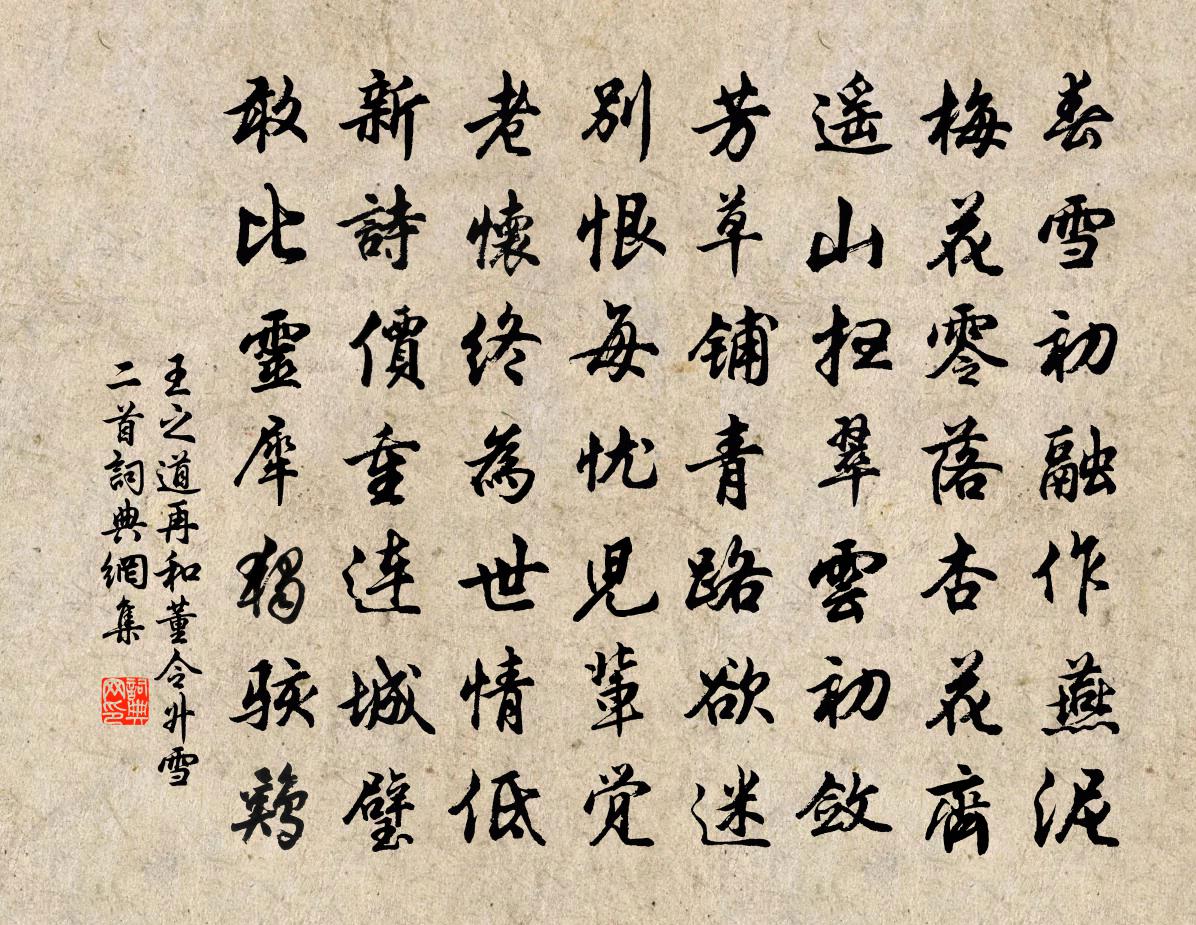 春雪初融作燕泥
梅花零落杏花齊
遥山扫翠雲初斂
芳草铺青路欲迷
別恨每忧児輩觉
老懷终為世情低
新詩價重連城璧
敢比靈犀獨駭鷄
王之道再和董令升雪
二首詞典網集
詞典
网印